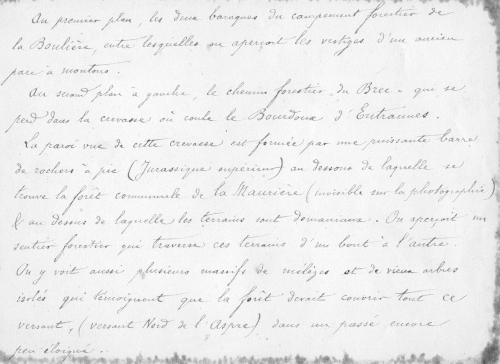 Au premier plan, les deux baraques du campement forestier de
la Boulière, entre lesquelles on aperçoit les vestiges d'un ancien
parc à moutons.
Au second plan à gauche, le chemin forestier du Brec - qui se
perd dans la crevasse où coule le Bourdoux d'Entraunes.
La paroi vue de cette crevasse est formée par une puissante barre
de rochers à pic (Jurassique supérieur) au dessous de laquelle se
trouve la forêt communale de la Maurière (invisible sur la photographie)
& au dessus de laquelle les terrains sont domaniaux. On aperçoit un
sentier forestier qui traverse ces terrains d'un bout à l'autre.
On y voit aussi plusieurs massifs de mélèzes et de vieux arbres
isolés qui témoignent que la forêt devait couvrir tout ce
versant, (versant Nord de l'Aspre) dans un passé encore
peu éloigné.